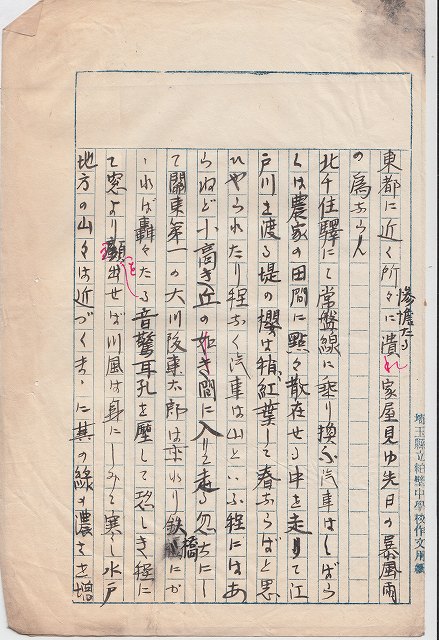 東都に近く所々に惨憺たる潰れ家屋見ゆ先日の暴風雨
の為ならん
北千住驛にて常盤線に乗り換ふ汽車はしばら
くは農家の田間に點々散在せる中を走りて江
戸川を渡る堤の櫻は稍紅葉して春ならばと思
ひやられたり程なく汽車は山といふ程にはあ
らねど小高き丘の如き間に入りて走る忽ちにし
て關東第一の大川阪東太郎は来れり鉄橋にか
ゝれば轟々たる音響耳孔を壓して恐しき程に
て窓より顔を出せば川風は身にしみて寒し水戸
地方の山々は近づくまゝに其の緑の濃さを増
埼玉縣立粕壁中學校作文用紙